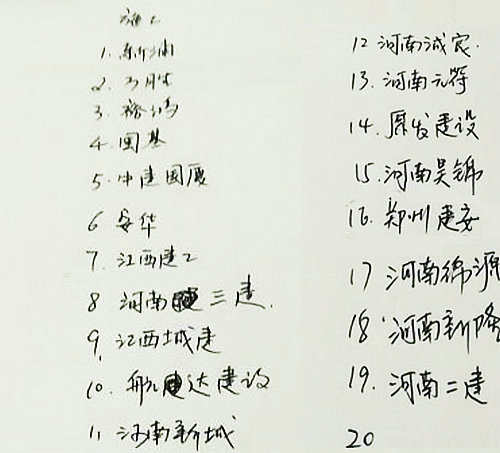 施工
1. 新浦
2. 万胜
3. 裕鸿
4 国基
5. 中建国厦
6 安华
7. 江西建工
8 河南三建.
9. 江西城建
10. 航达建设
11 河南新城
12 河南诚宸.
13. 河南元符
14. 原发建设
15. 河南昊锦
16. 郑州建安
17 河南锦源
18 河南新隆
19. 河南二建
20